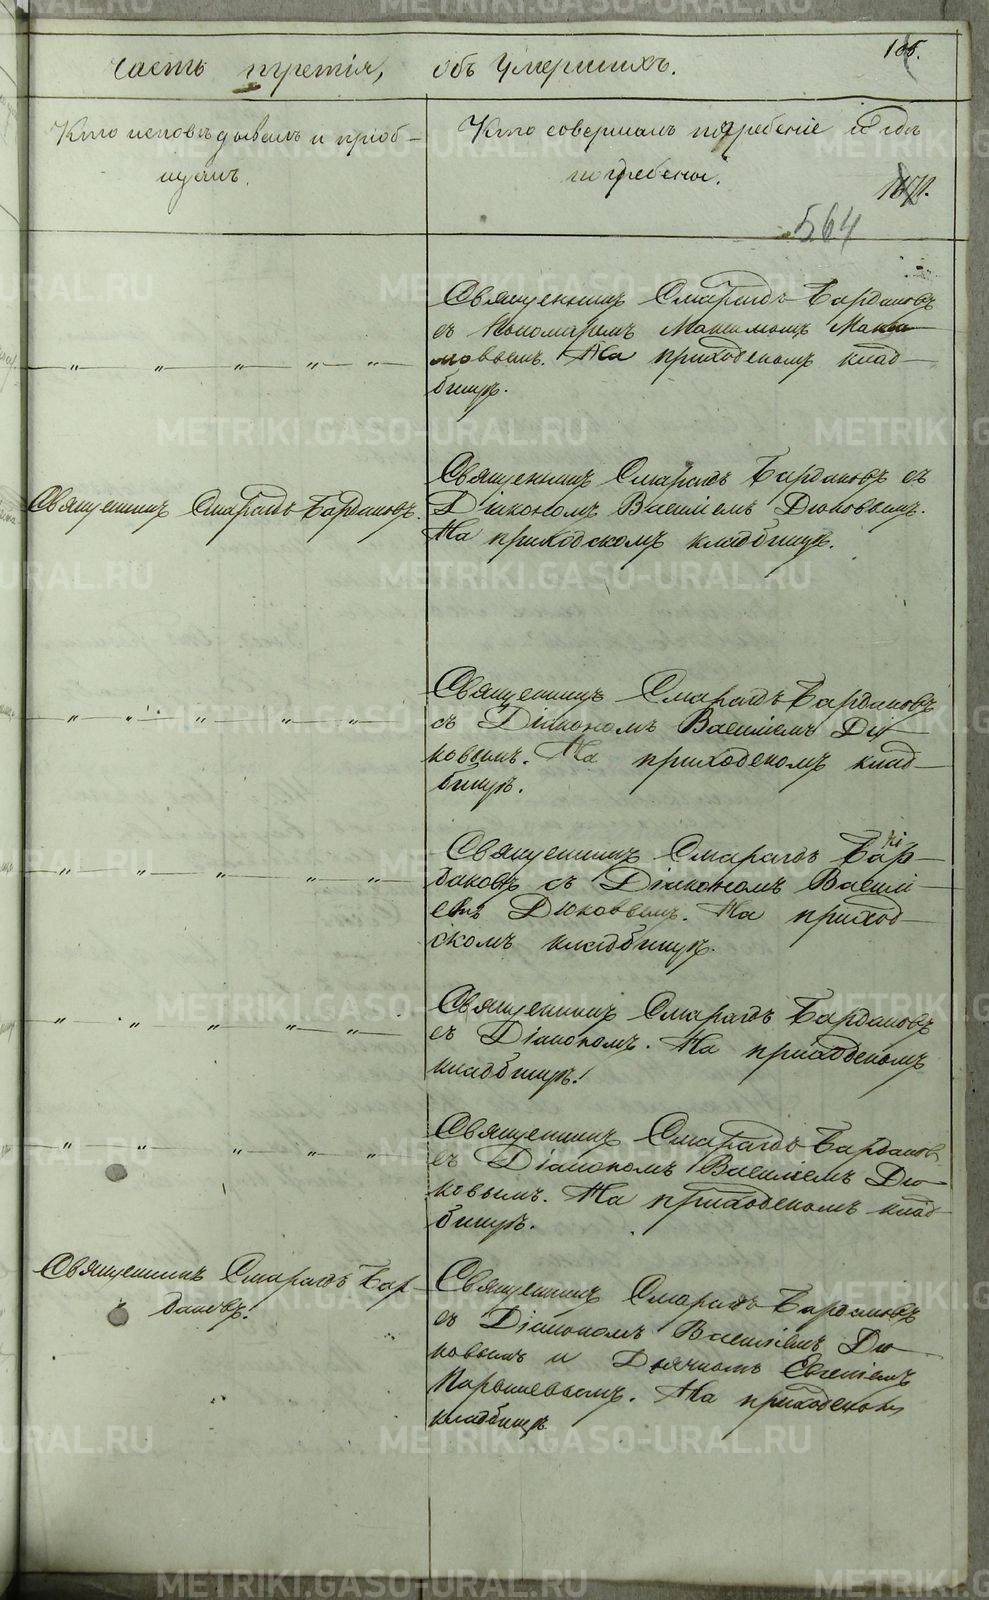 часть третія, объ умершихъ.
166.
Кто исповѣдывалъ и пріоб-
щалъ.
Кто совершалъ погребеніе и гдѣ
погребены.
564
Священникъ Смарагдъ Бардаковъ
съ Пономаремъ Максимомъ Макси-
мовымъ. На приходскомъ клад-
бищѣ.
— „ — „ — „ — „ — „ —
Священникъ Смарагдъ Бардаковъ.
Священникъ Смарагдъ Бардаковъ съ
Діакономъ Василіемъ Дюковымъ.
На приходскомъ кладбищѣ.
— „ — „ — „ — „ — „ —
Священникъ Смарагдъ Бардаковъ
съ Діакономъ Василіемъ Дю-
ковымъ. На приходскомъ клад-
бищѣ.
— „ — „ — „ — „ — „ —
Священникъ Смарагдъ Бар-
даковъ съ Діакономъ Василі-
емъ Дюковымъ. На приход-
скомъ кладбищѣ.
— „ — „ — „ — „ — „ —
Священникъ Смарагдъ Бардаковъ
съ Діакономъ. На приходскомъ
кладбищѣ.
— „ — „ — „ — „ — „ —
Священникъ Смарагдъ Бардаковъ
съ Діакономъ Василіемъ Дю-
ковымъ. На приходскомъ клад-
бищѣ.
Священникъ Смарагдъ Бар-
даковъ.
Священникъ Смарагдъ Бардаковъ
съ Діакономъ Василіемъ Дю-
ковымъ и Дьячкомъ Евгеніемъ
На приходскомъ
кладбищѣ
METRIKI.GASO-URAL.RU